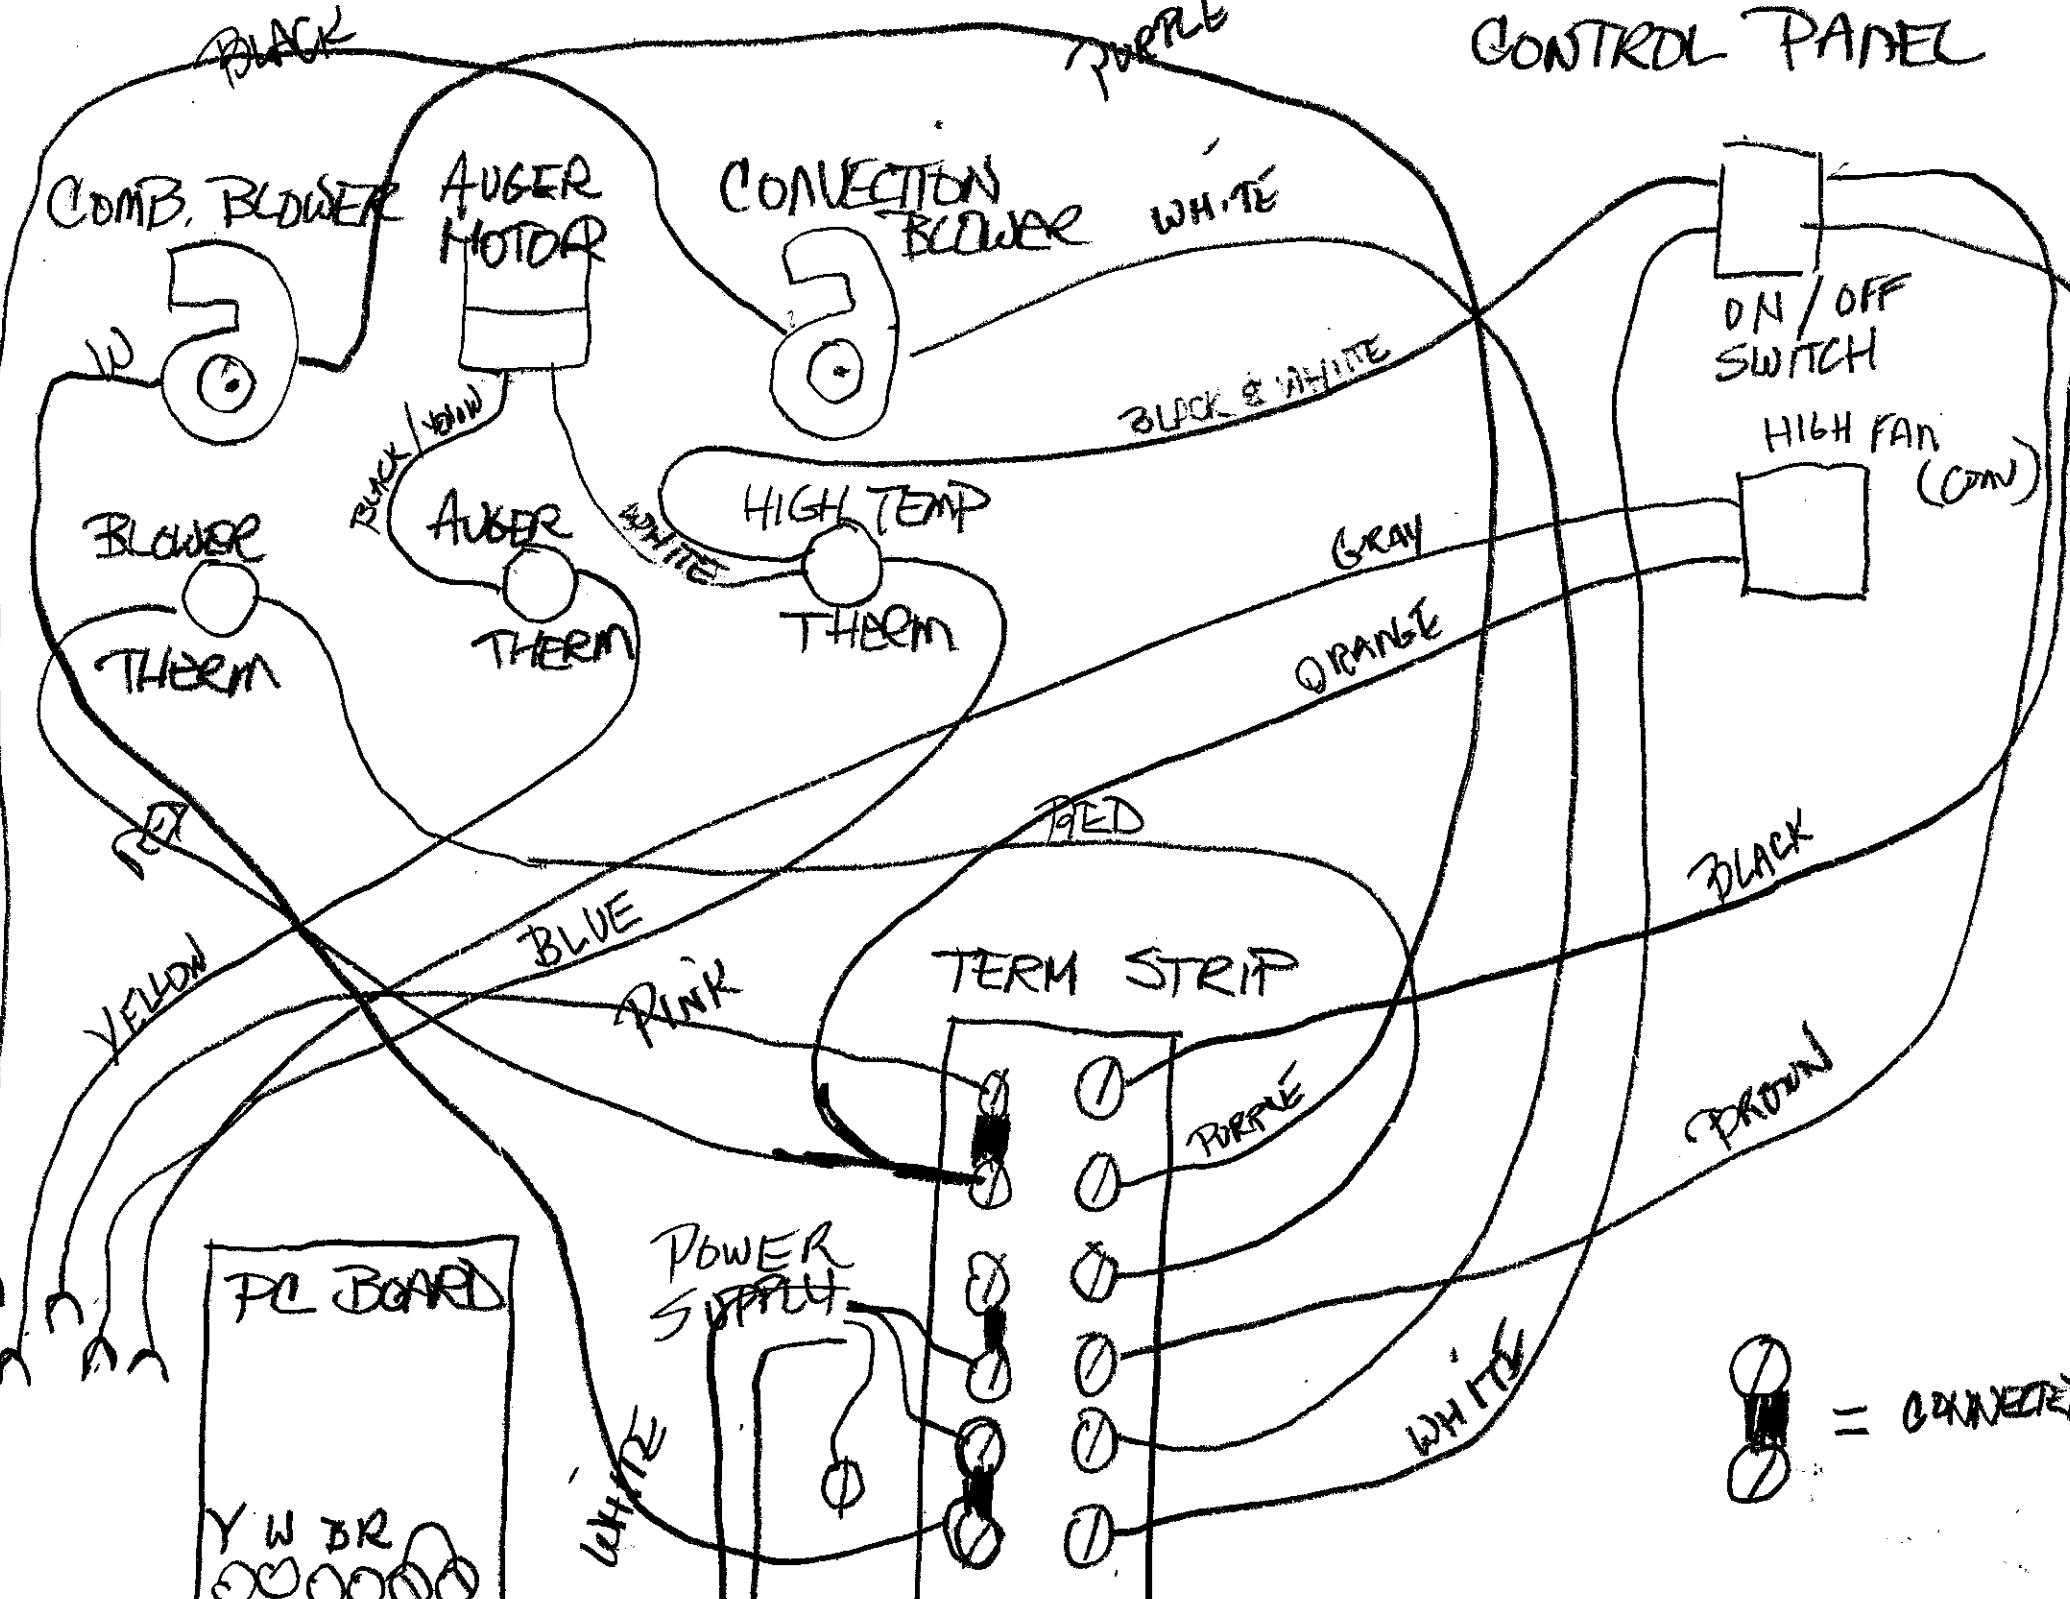 BLACK
PURPLE
CONTROL PANEL
COMB. BLOWER
AUGER
MOTOR
CONVECTION
BLOWER
WHITE
W
ON/OFF
SWITCH
BLACK/YELLOW
BLACK & WHITE
HIGH FAN
(CONV)
BLOWER
THERM
AUGER
THERM
WHITE
HIGH TEMP
THERM
GRAY
ORANGE
RED
BLACK
YELLOW
BLUE
PINK
TERM STRIP
PURPLE
BROWN
POWER
SUPPLY
PC BOARD
WHITE
WHITE
= CONNECTED
Y W B R